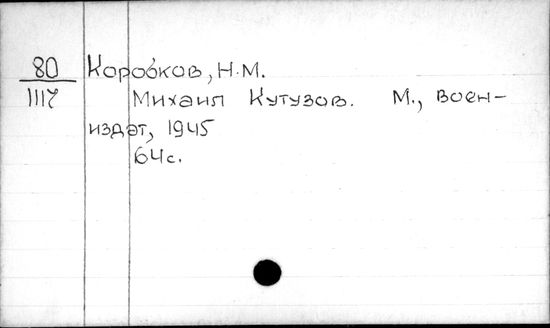 80 Коробков, Н.М.
1117 Михаил Кутузов. М., воен-
издат, 1945
64с.